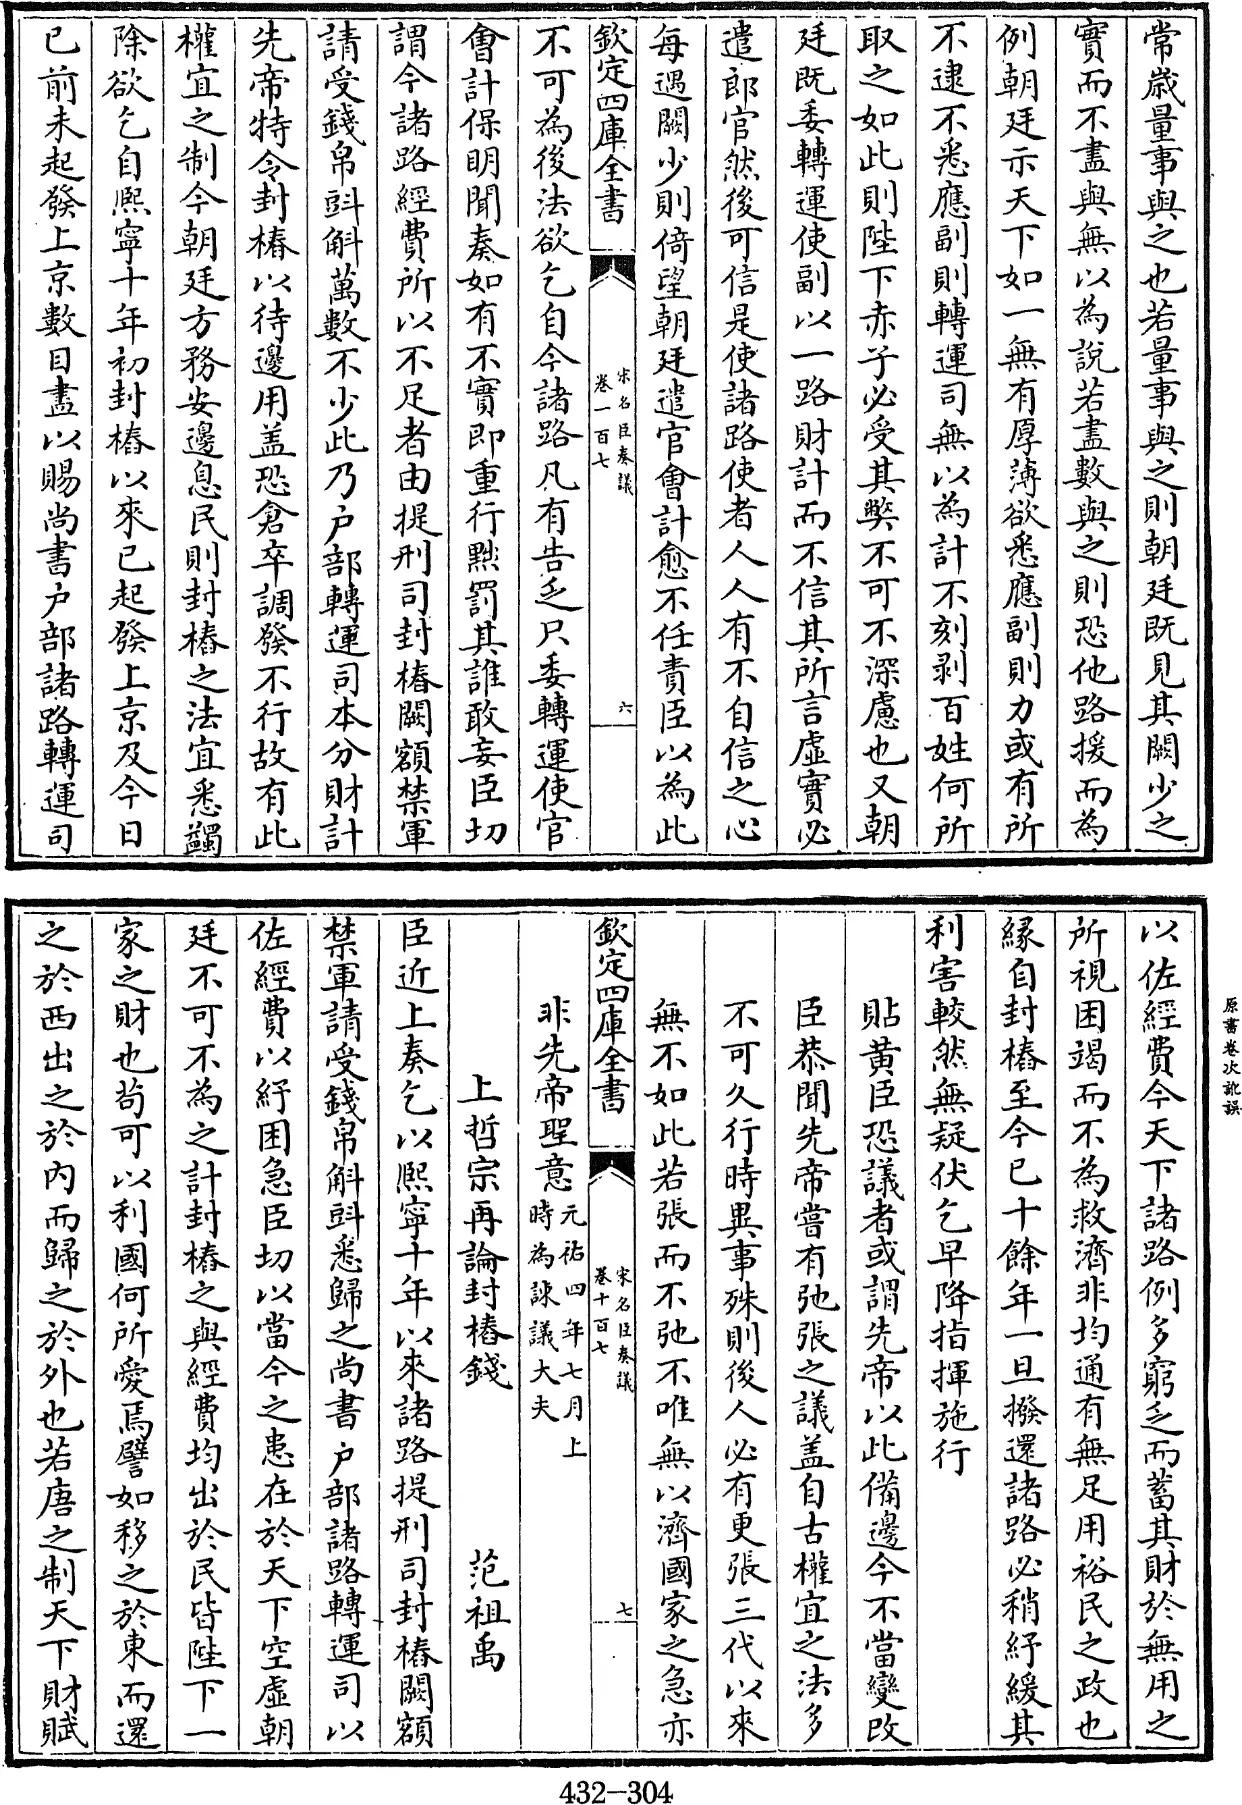 常歲量事與之也若量事與之則朝廷既見其闕少之
實而不盡與無以為說若盡數與之則恐他路援而為
例朝廷示天下如一無有厚薄欲悉應副則力或有所
不逮不悉應副則轉運司無以為計不刻剥百姓何所
取之如此則陛下赤子必受其弊不可不深慮也又朝
廷既委轉運使副以一路財計而不信其所言虛實必
遣郎官然後可信是使諸路使者人人有不自信之心
每遇闕少則倚望朝廷遣官會計愈不任責臣以為此
欽定四庫全書
宋名臣奏議
卷一百七
六
不可為後法欲乞自今諸路凡有告乏只委轉運使官
會計保明聞奏如有不實即重行黜罰其誰敢妄臣切
謂今諸路經費所以不足者由提刑司封樁闕額禁軍
請受錢帛㪷斛萬數不少此乃户部轉運司本分財計
先帝特令封樁以待邊用盖恐倉卒調發不行故有此
權宜之制今朝廷方務安邊息民則封樁之法宜悉蠲
除欲乞自熙寧十年初封樁以來已起發上京及今日
已前未起發上京數目盡以賜尚書户部諸路轉運司
以佐經費今天下諸路例多窮乏而蓄其財於無用之
所視困竭而不為救濟非均通有無足用裕民之政也
緣自封樁至今已十餘年一旦撥還諸路必稍紓緩其
利害較然無疑伏乞早降指揮施行
貼黃臣恐議者或謂先帝以此備邊今不當變改
臣恭聞先帝嘗有弛張之議盖自古權宜之法多
不可久行時異事殊則後人必有更張三代以來
無不如此若張而不弛不唯無以濟國家之急亦
欽定四庫全書
宋名臣奏議
卷十百七
七
非先帝聖意元祐四年七月上
時為諌議大夫
上哲宗再論封樁錢 范祖禹
臣近上奏乞以熙寧十年以來諸路提刑司封樁闕額
禁軍請受錢帛斛㪷悉歸之尚書户部諸路轉運司以
佐經費以紓困急臣切以當今之患在於天下空虛朝
廷不可不為之計封樁之與經費均出於民皆陛下一
家之財也苟可以利國何所愛焉譬如移之於東而還
之於西出之於内而歸之於外也若唐之制天下財賦
原書卷次訛誤
432-304